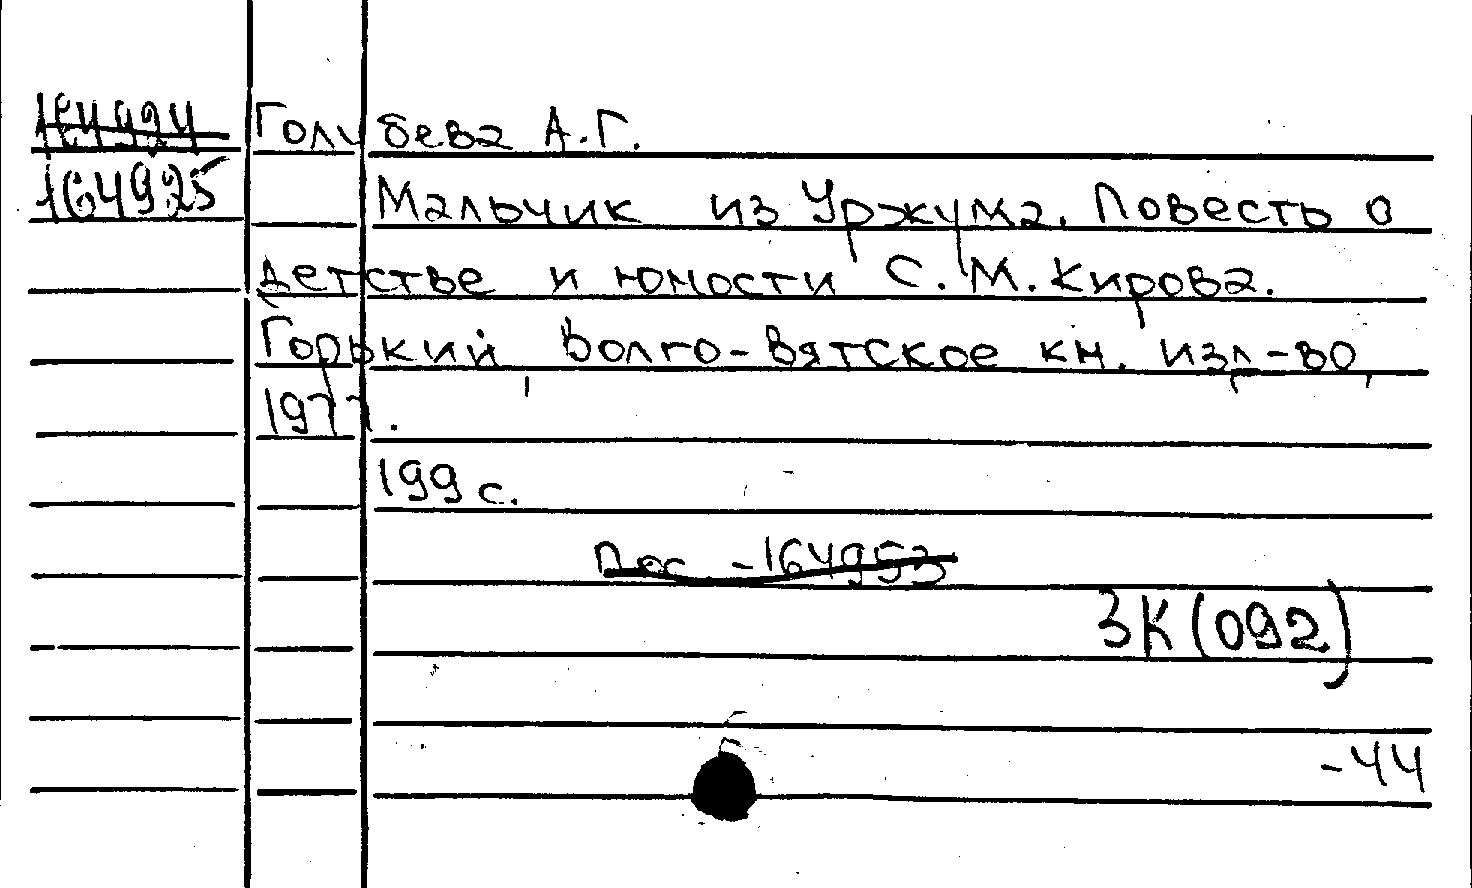 164924 Голубева А.Г.
164925 Мальчик из Уржума. Повесть о
детстве и юмости С.М.Кирова.
Горький, Волго-Вятское кн. изд-во,
1977.
199 с.
Дос -164953
3К(092)
-44